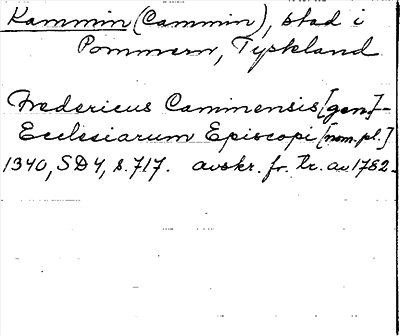 Kammin (Cammin), stad i
Pommern, Tyskland
Fredericus Caminensis [gen.] -
Ecclesiarum Episcopi [nom. pl.]
1340, SD4, s. 717. avskr. fr. tr. av 1782.